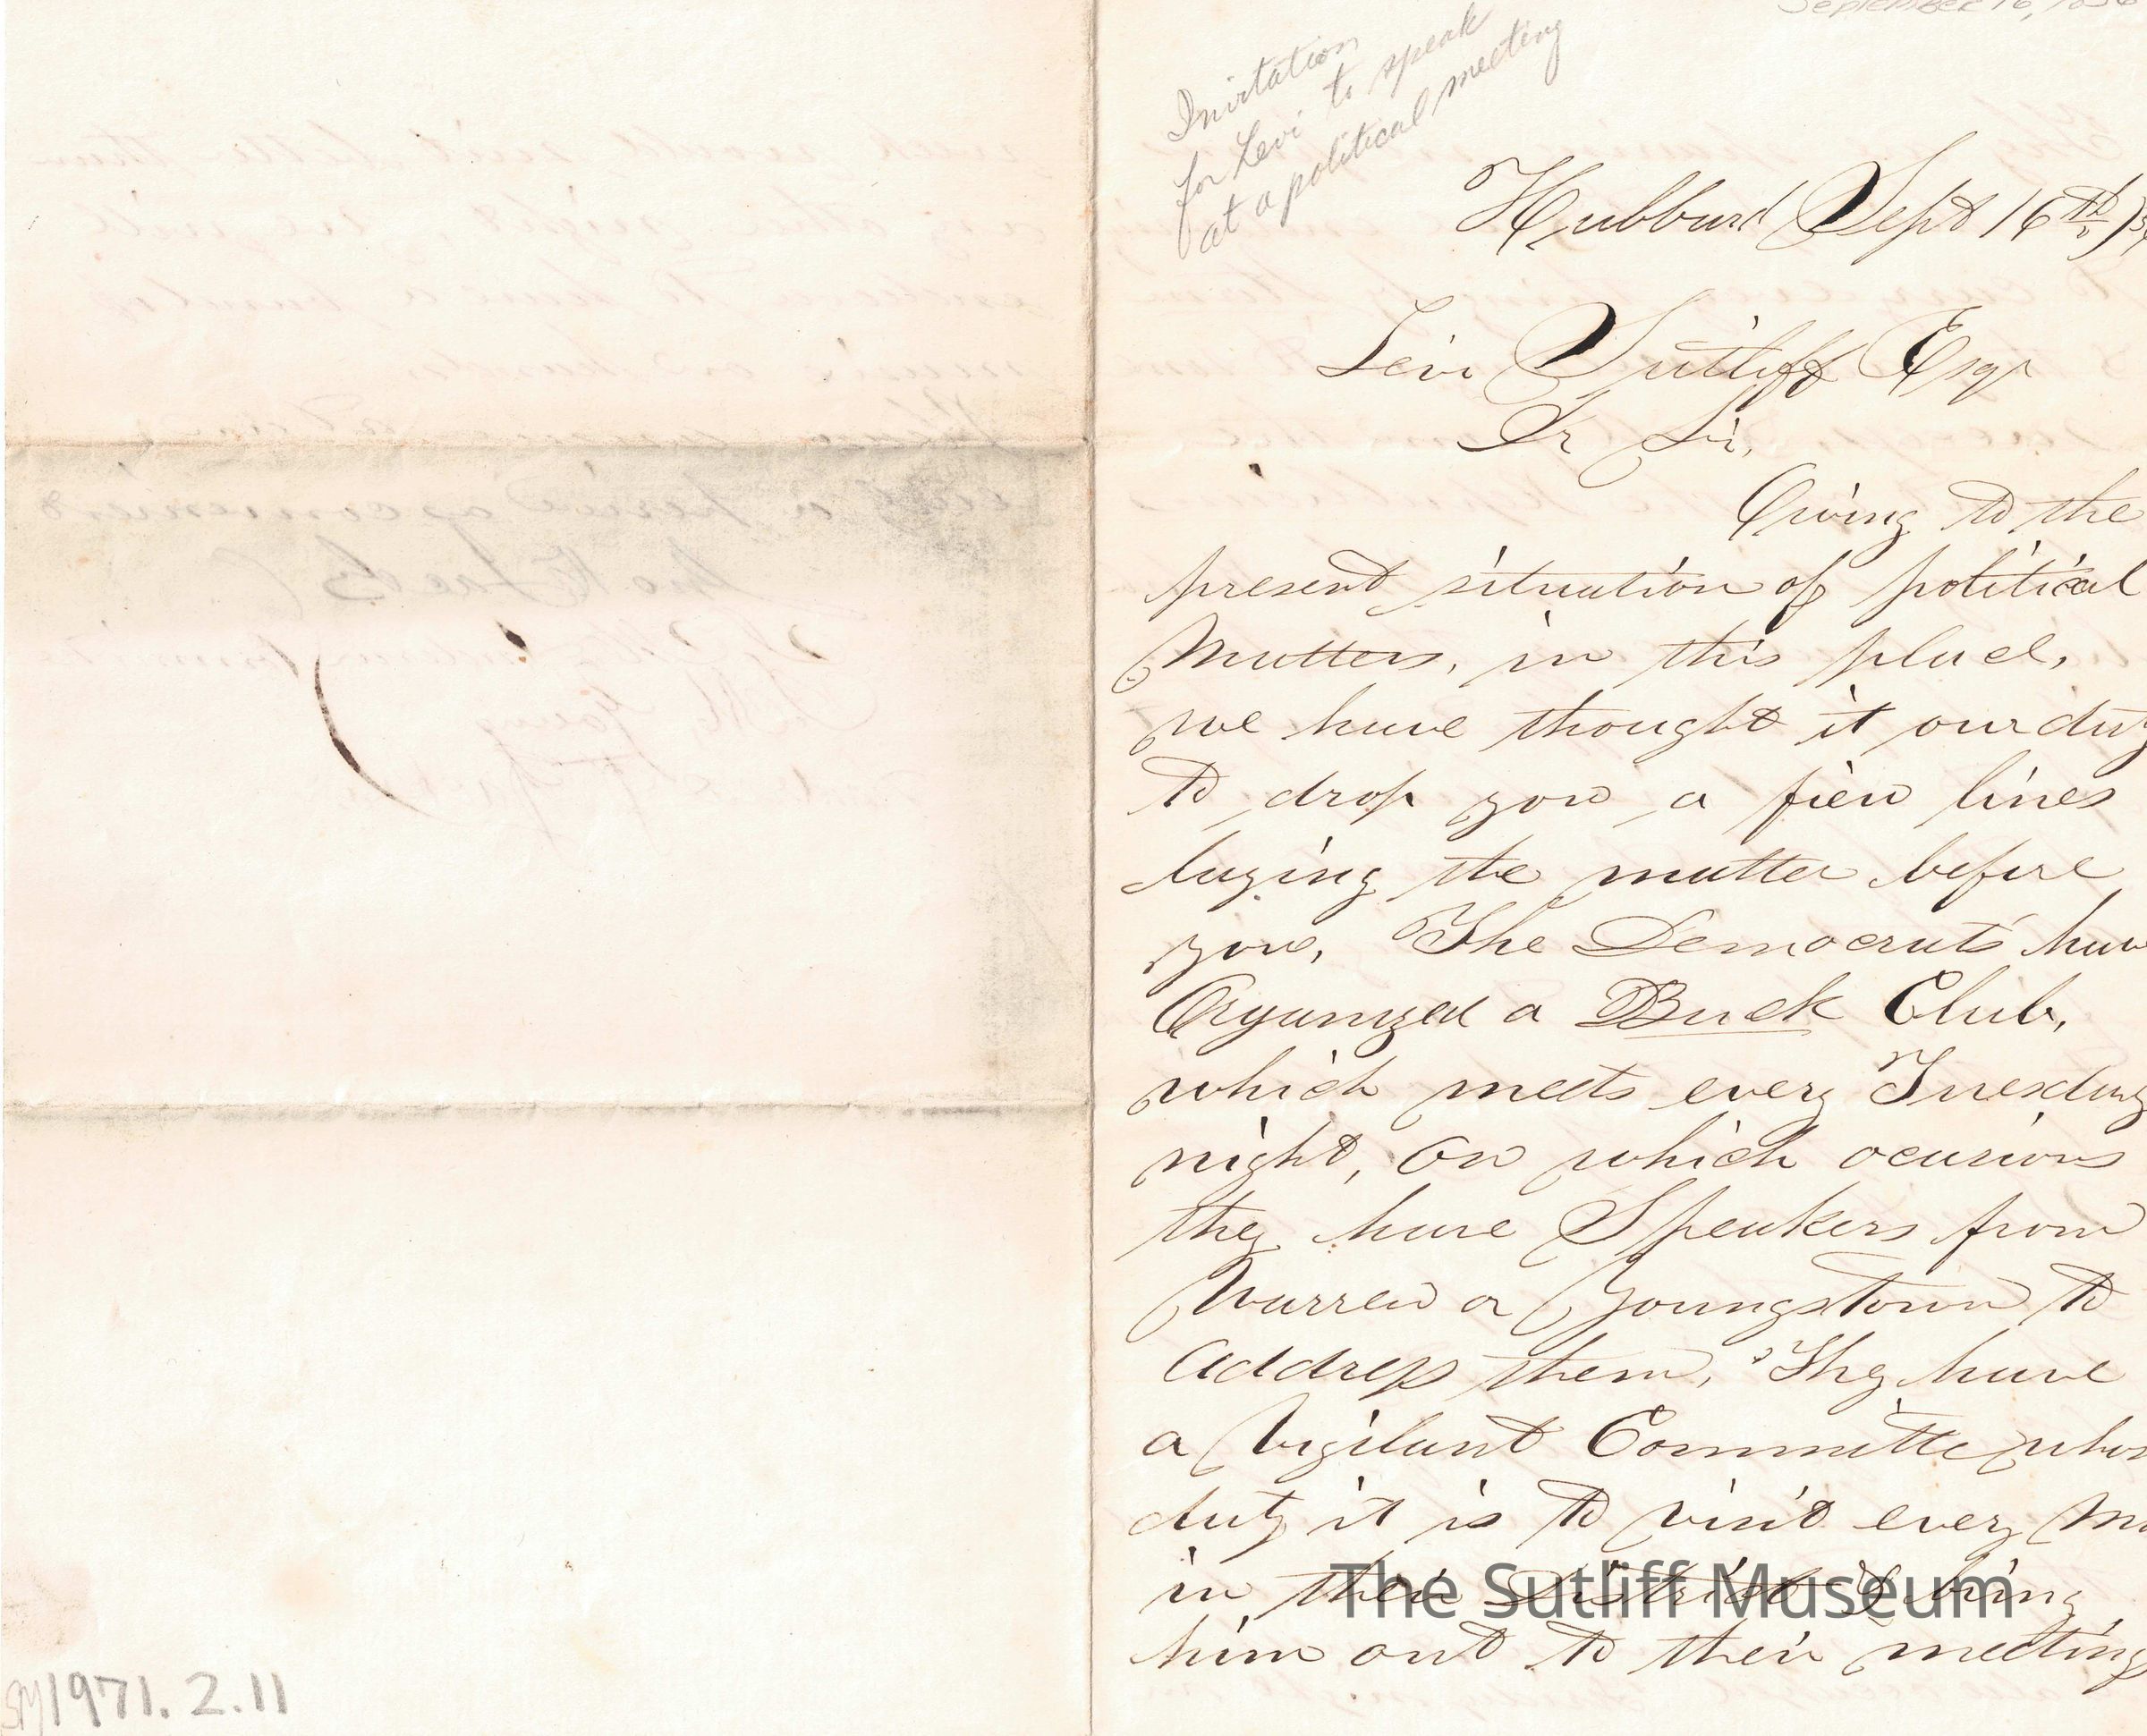 September 16, 185
Invitation
for Levi to speak
at a political meeting
Hubbard Sept 16th
Levi Sutliff Esqr
Dr Sir,
Owing to the
present situation of political
Matters, in this place,
we have thought it our duty
to drop you a few lines
laying the matter before
you, The Democrats have
Organized a Buck Club,
which meets every Tuesday
night, On which ocasions
they have Speakers from
Warren or Youngstown to
Address them, They have
a Vigilant Committe whos
duty it is to visit every
in their District & bring
him out to their meeting
The Sutliff Museum
SM1971.2.11